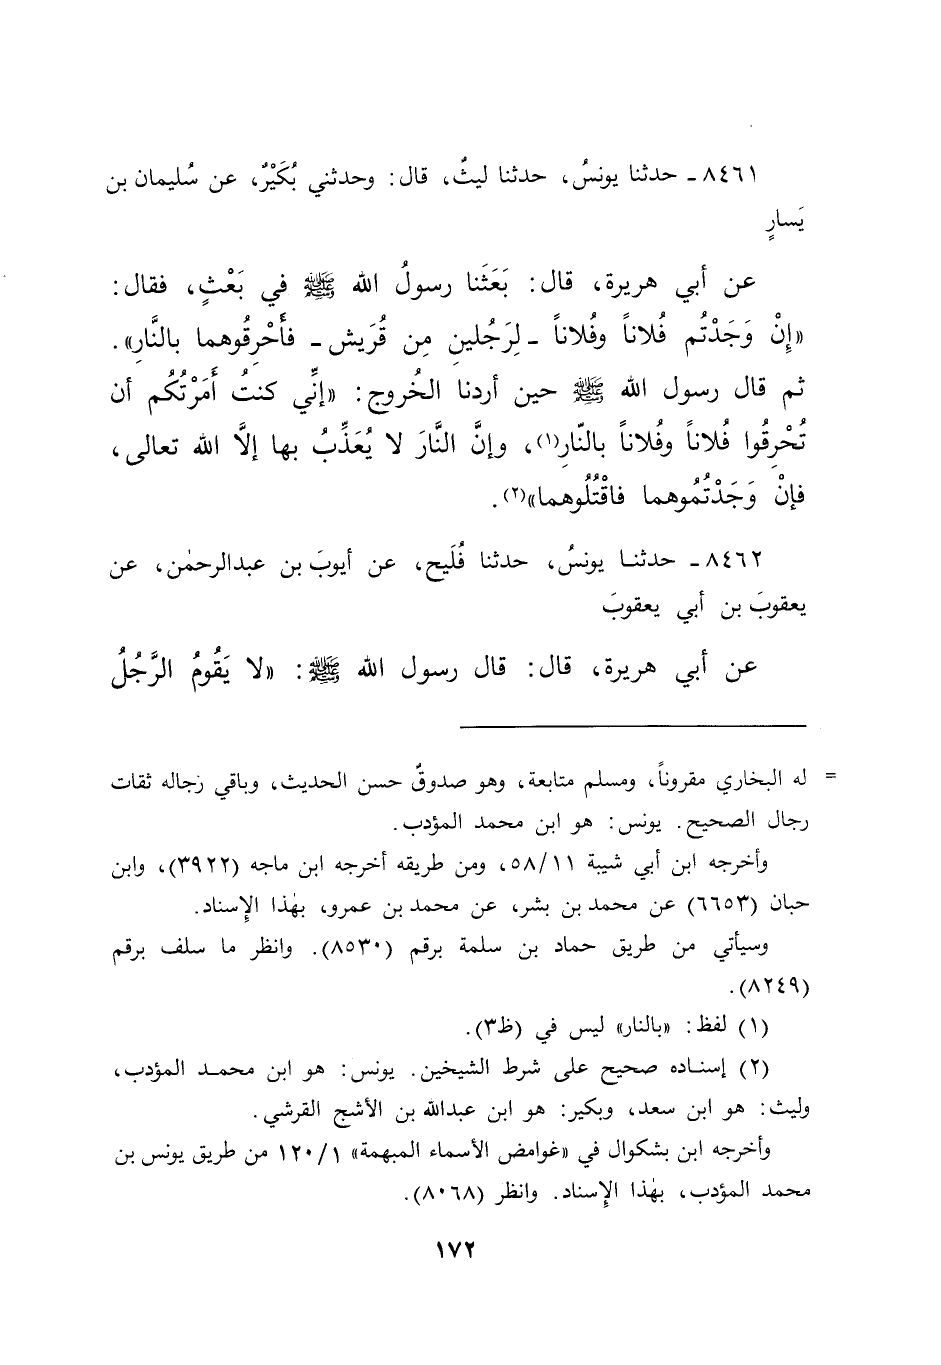 ٨٤٦١ ـ حدثنا يونسُ، حدثنا ليثٌ، قال: وحدثني بُكَيْرٌ، عن سُليمان بن
يَسارٍ
عن أبي هريرة، قال: بَعَثَنا رسولُ الله ﷺ في بَعْثٍ، فقال:
«إِنْ وَجَدْتُم فُلاناً وفُلاناً ـ لِرَجُلينِ مِن قُرَيش ـ فأَحْرِقُوهما بالنَّارِ».
ثم قال رسول الله ﷺ حين أردنا الخُروج: «إنِّي كنتُ أَمَرْتُكُم أن
تُحْرِقُوا فُلاناً وفُلاناً بالنّارِ(١)، وإنَّ النَّارَ لا يُعَذِّبُ بها إلَّا الله تعالى،
فإنْ وَجَدْتُمُوهما فاقْتُلُوهما»(٢).
٨٤٦٢ ـ حدثنا يونسُ، حدثنا فُلَيح، عن أيوبَ بن عبدالرحمٰن، عن
يعقوبَ بن أبي يعقوبَ
عن أبي هريرة، قال: قال رسول الله ﷺ: «لا يَقُومُ الرَّجُلُ
= له البخاري مقروناً، ومسلم متابعة، وهو صدوقٌ حسن الحديث، وباقي رجاله ثقات
رجال الصحيح. يونس: هو ابن محمد المؤدب.
وأخرجه ابن أبي شيبة ٥٨/١١، ومن طريقه أخرجه ابن ماجه (٣٩٢٢)، وابن
حبان (٦٦٥٣) عن محمد بن بشر، عن محمد بن عمرو، بهٰذا الإِسناد.
وسيأتي من طريق حماد بن سلمة برقم (٨٥٣٠). وانظر ما سلف برقم
(٨٢٤٩).
(١) لفظ: «بالنار» ليس في (ظ٣).
(٢) إسناده صحيح على شرط الشيخين. يونس: هو ابن محمد المؤدب،
وليث: هو ابن سعد، وبكير: هو ابن عبدالله بن الأشج القرشي.
وأخرجه ابن بشكوال في «غوامض الأسماء المبهمة» ١٢٠/١ من طريق يونس بن
محمد المؤدب، بهٰذا الإِسناد. وانظر (٨٠٦٨).
١٧٢